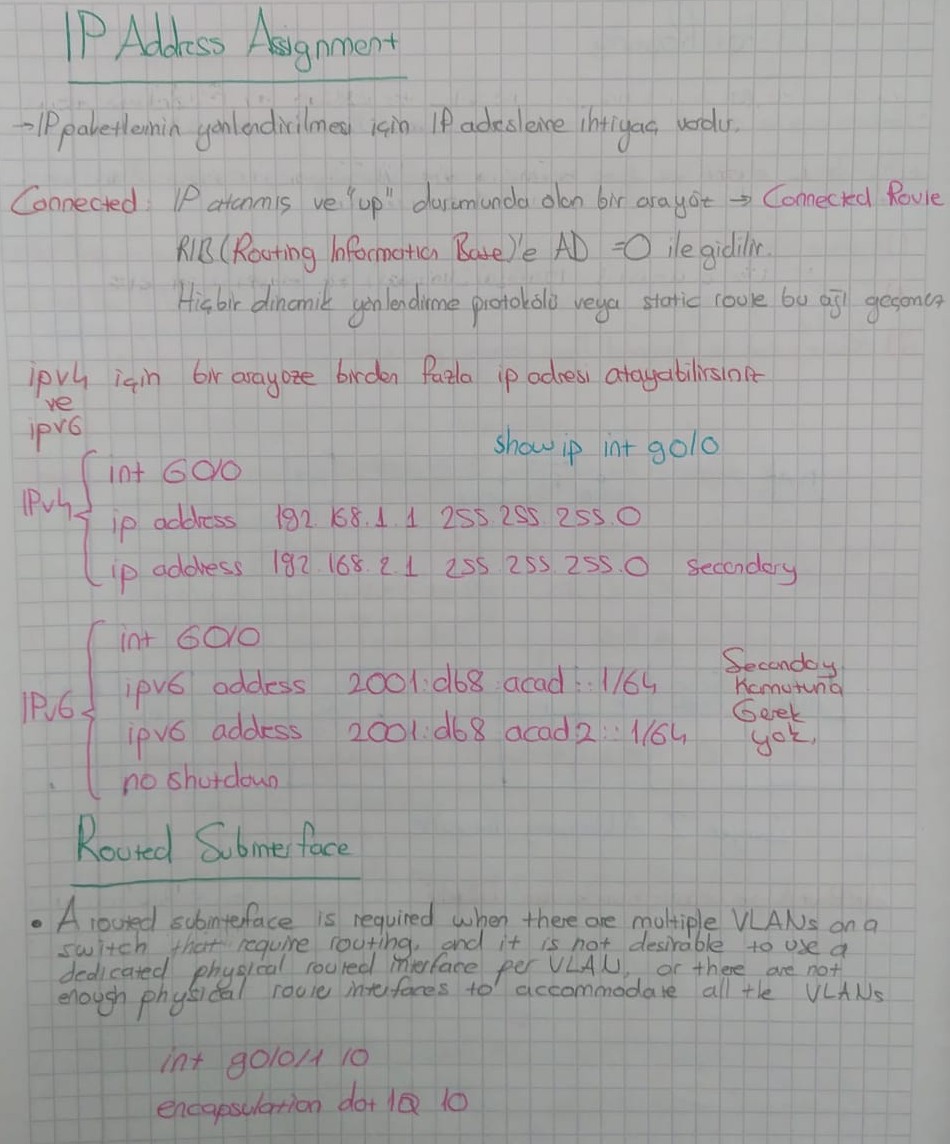 IP Address Assignment
→IP paketlerinin yönlendirilmesi için IP adreslerine ihtiyaç vardır.
Connected: IP atanmış ve "up" durumunda olan bir arayöz → Connected Route
RIB (Routing Information Base)'e AD =0 ile gidilir.
Hiçbir dinamik yönlendirme protokolü veya static route bu ağı geçemez
ipv4 için bir arayöze birden fazla ip adresi atayabilirsiniz
ve
ipv6
show ip int g0/0
IPv4
int G0/0
ip address 192.168.1.1 255.255.255.0
ip address 192.168.2.1 255.255.255.0 secondary
IPv6
int G0/0
ipv6 address 2001:db8:acad::1/64
ipv6 address 2001:db8:acad2::1/64
no shutdown
Secondary
Komutuna
Gerek
yok.
Routed Subinterface
• A routed subinterface is required when there are multiple VLANs on a
switch that require routing, and it is not desirable to use a
dedicated physical routed interface per VLAN, or there are not
enough physical route interfaces to accommodate all the VLANs
int g0/0/1.10
encapsulation dot 1Q 10